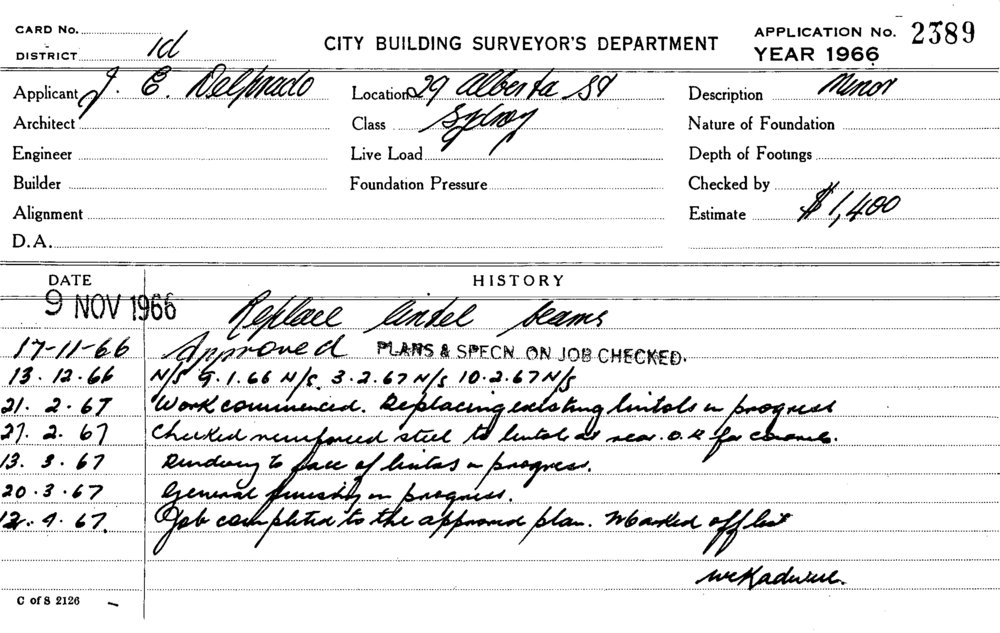 CARD No.
DISTRICT 1d
CITY BUILDING SURVEYOR'S DEPARTMENT
APPLICATION No. 2389
YEAR 1966
Applicant J. E. Delprado
Location 29 Alberta St
Description Minor
Architect
Class Sydney
Nature of Foundation
Engineer
Live Load
Depth of Footings
Builder
Foundation Pressure
Checked by
Alignment
Estimate $1,400
D.A.
DATE HISTORY
9 NOV 1966 Replace lintel beams
17-11-66 Approved PLANS & SPECN. ON JOB CHECKED.
13.12.66 N/S 9.1.66 N/S. 3.2.67 N/S 10.2.67 N/S
21.2.67 Work commenced. Replacing existing lintols in progress
27.2.67 Checked reinforced steel to lintols at rear. O.K for concrete.
13.3.67 Rendering to face of lintols in progress.
20.3.67 General finishing in progress.
12.4.67 Job completed to the approved plan. Marked off list
C of S 2126